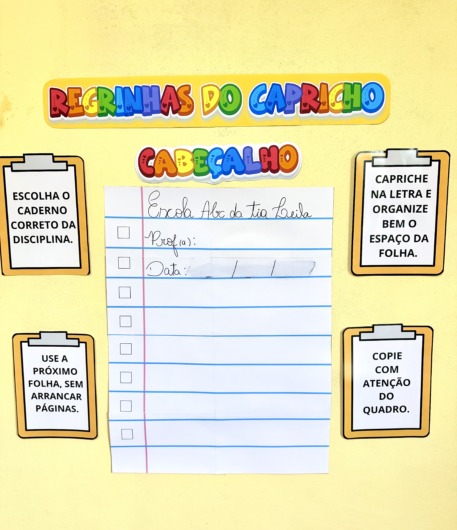 REGRINHAS DO CAPRICHO
CABEÇALHO
ESCOLHA O
CADERNO
CORRETO DA
DISCIPLINA.
CAPRICHE
NA LETRA E
ORGANIZE
BEM O
ESPAÇO DA
FOLHA.
Escola Abc da tia Leila
Prof(a):
Data: / /
USE A
PRÓXIMO
FOLHA, SEM
ARRANCAR
PÁGINAS.
COPIE
COM
ATENÇÃO
DO
QUADRO.